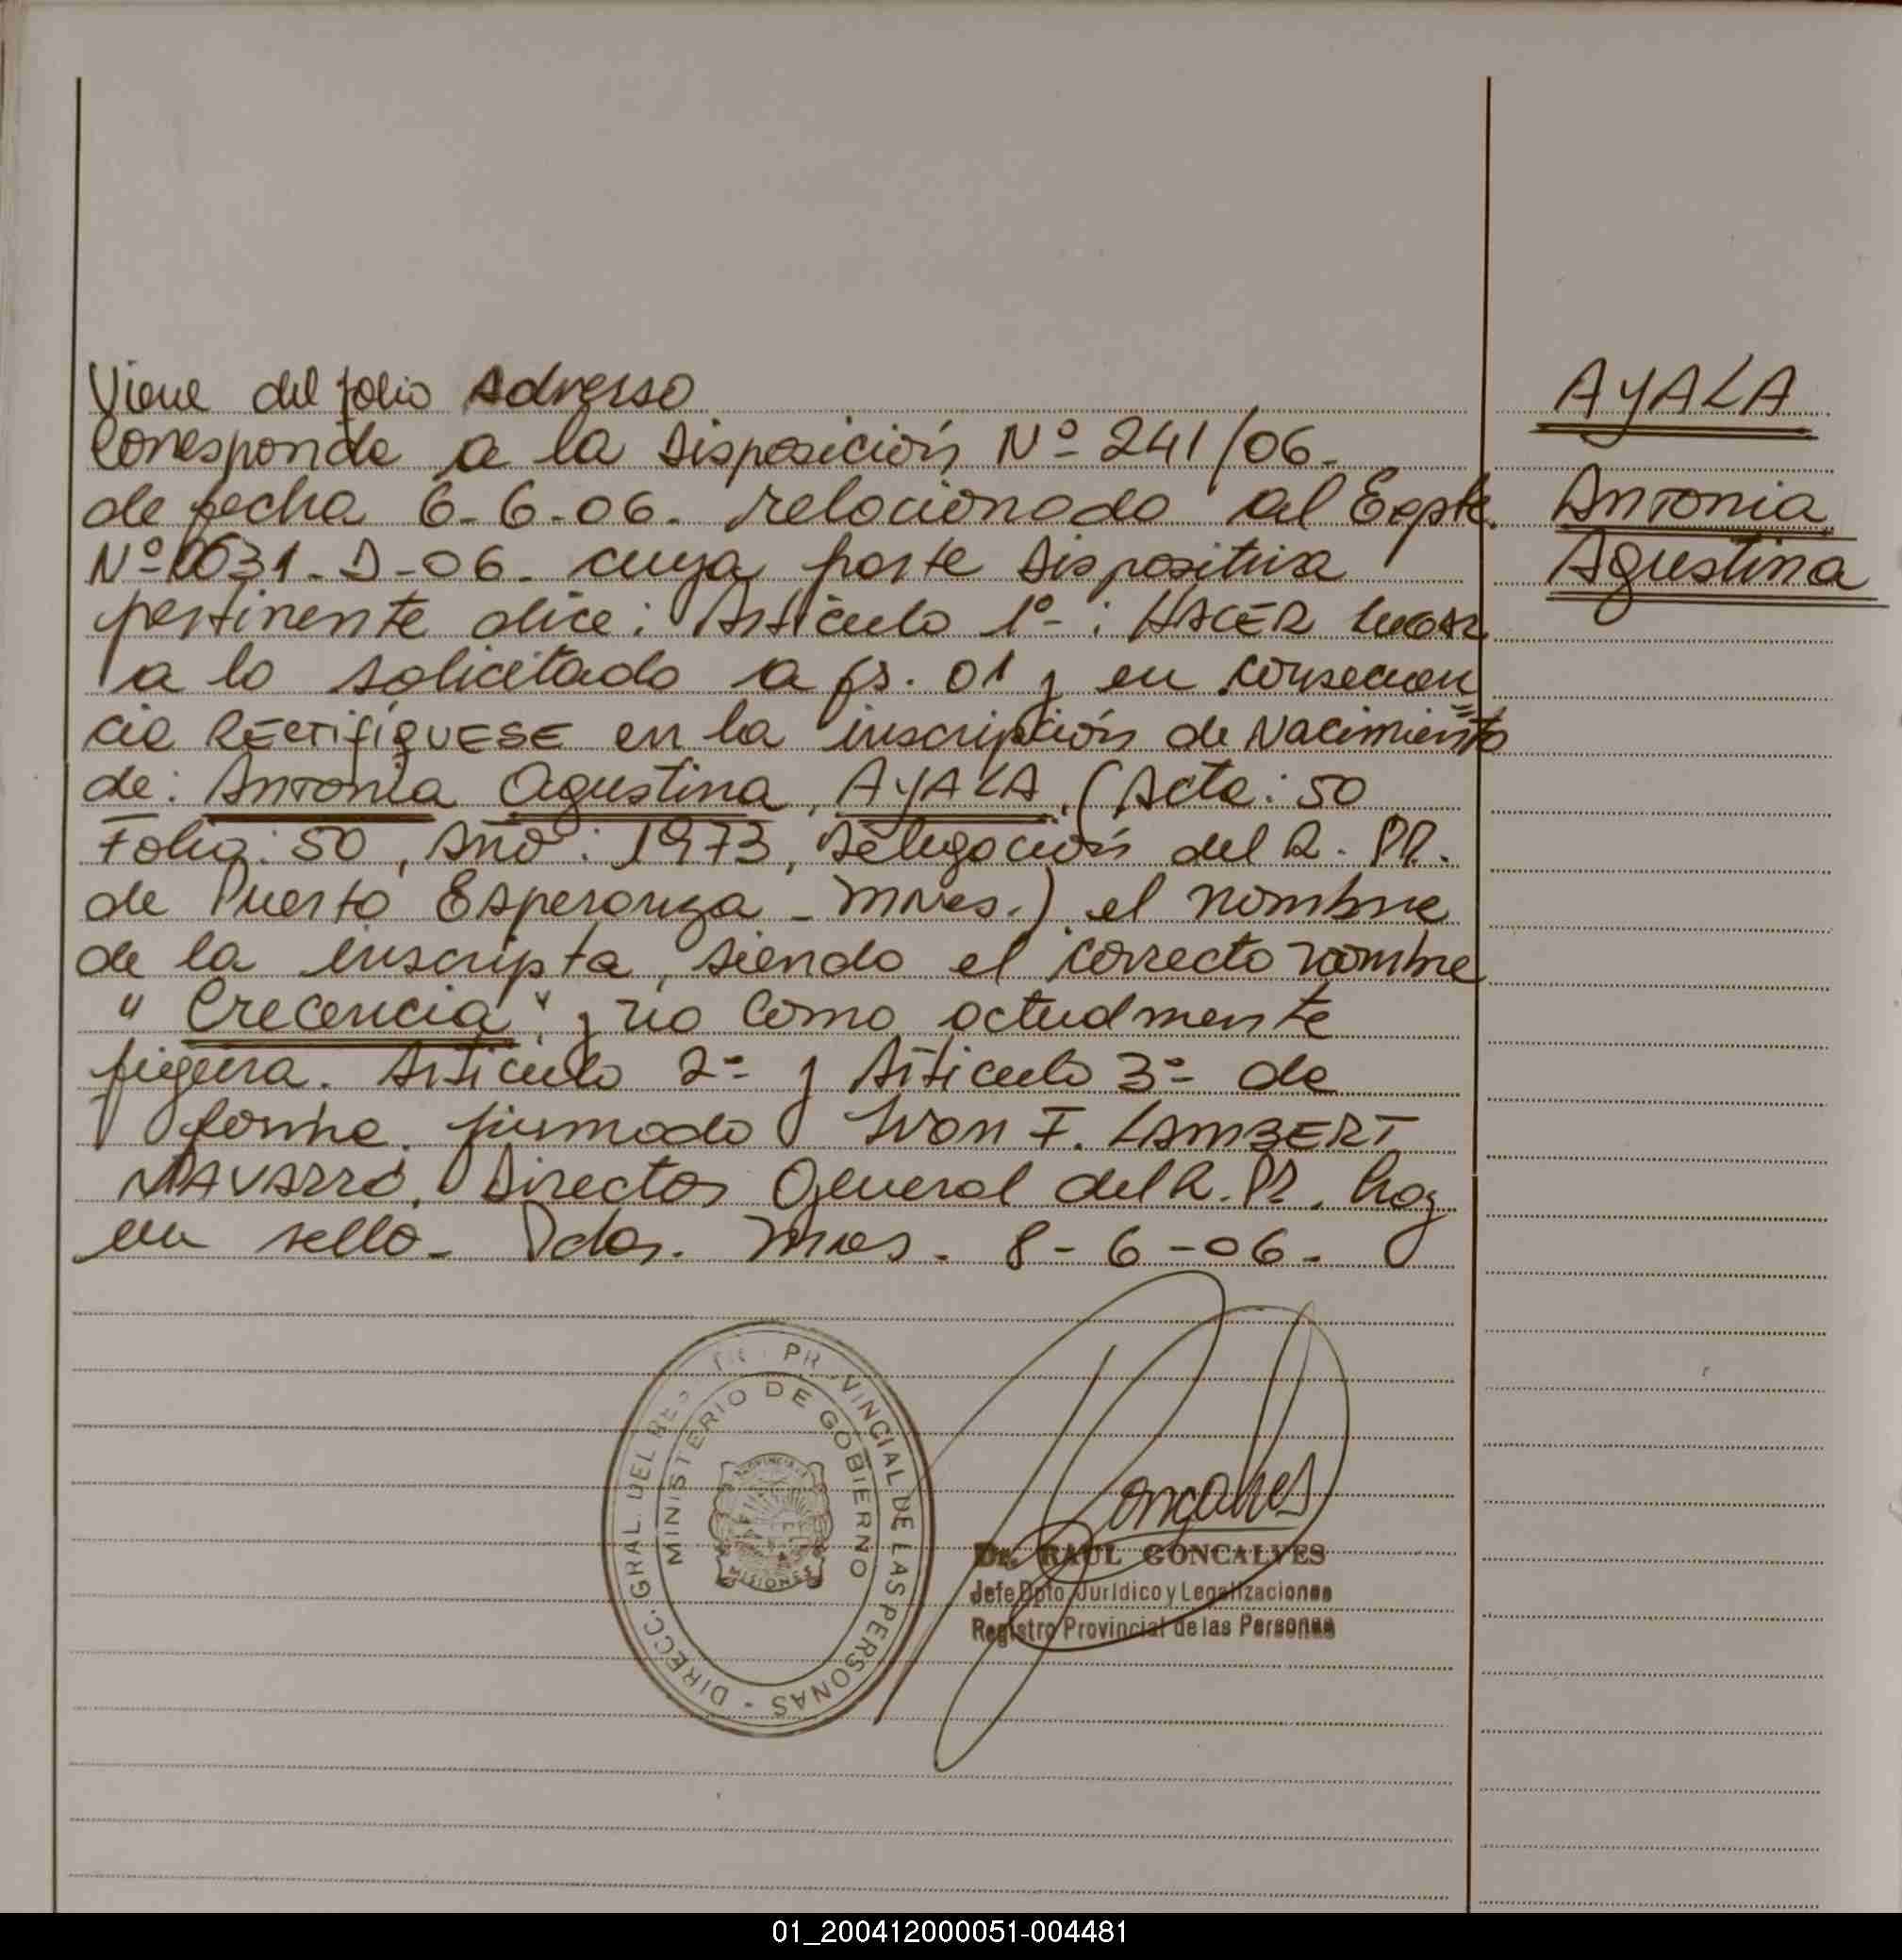 Viene del folio Adverso
Corresponde a la Disposición Nº 241/06.
de fecha 6-6-06. relacionado al Expte.
Nº 1031-D-06. cuya parte dispositiva
pertinente dice: Artículo 1º: HACER lugar
a lo solicitado a fs. 01 y en consecuen
cia RECTIFIQUESE en la inscripción de Nacimiento
de: Antonia Agustina, AYALA. (Acta: 50
Folio: 50, Año: 1973, Delegación del R. PP.
de Puerto Esperanza - Mnes.) el nombre
de la inscripta, siendo el correcto nombre
"Crecencia" y no como actualmente
figura. Artículo 2º y Artículo 3º de
forma. firmado Ivon F. LAMBERT
NAVARRO, Director General del R. PP. hay
un sello - Pdas. Mnes. 8-6-06.
AYALA
Antonia
Agustina
DIRECC. GRAL. DEL PROVINCIAL DE LAS PERSONAS -
MINISTERIO DE GOBIERNO
PROVINCIA DE
MISIONES
Goncalves
Dr. RAUL GONCALVES
Jefe Dpto. Jurídico y Legalizaciones
Registro Provincial de las Personas
01_200412000051-004481